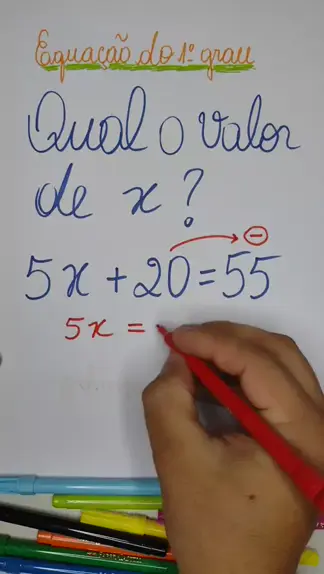 Equação do 1º grau
Qual o valor
de x?
⊖
5x + 20 = 55
5x =